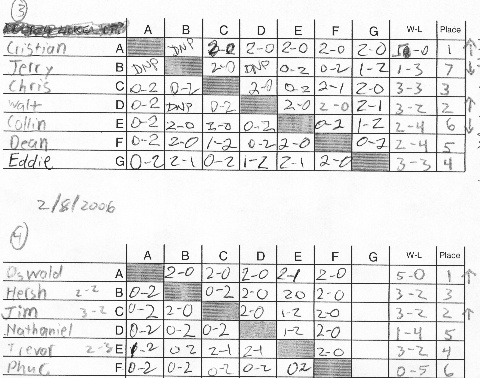 3
A B C D E F G W-L Place
Cristian A DNP 2-0 2-0 2-0 2-0 2-0 5-0 1 ↑
Jerry B DNP 2-0 DNP 0-2 0-2 1-2 1-3 7 ↓
Chris C 0-2 0-2 2-0 0-2 2-1 2-0 3-3 3
Walt D 0-2 DNP 0-2 2-0 2-0 2-1 3-2 2 ↑
Collin E 0-2 2-0 2-0 0-2 0-2 1-2 2-4 6 ↓
Dean F 0-2 2-0 1-2 0-2 2-0 0-2 2-4 5
Eddie G 0-2 2-1 0-2 1-2 2-1 2-0 3-3 4
2/8/2006
4
A B C D E F G W-L Place
Oswald A 2-0 2-0 2-0 2-1 2-0 5-0 1 ↑
Hersh 2-2 B 0-2 0-2 2-0 20 2-0 3-2 3
Jim 3-2 C 0-2 2-0 2-0 1-2 2-0 3-2 2 ↑
Nathaniel D 0-2 0-2 0-2 1-2 2-0 1-4 5
Trevor 2-3 E 1-2 0-2 2-1 2-1 2-0 3-2 4
Phuc F 0-2 0-2 0-2 0-2 02 0-5 6